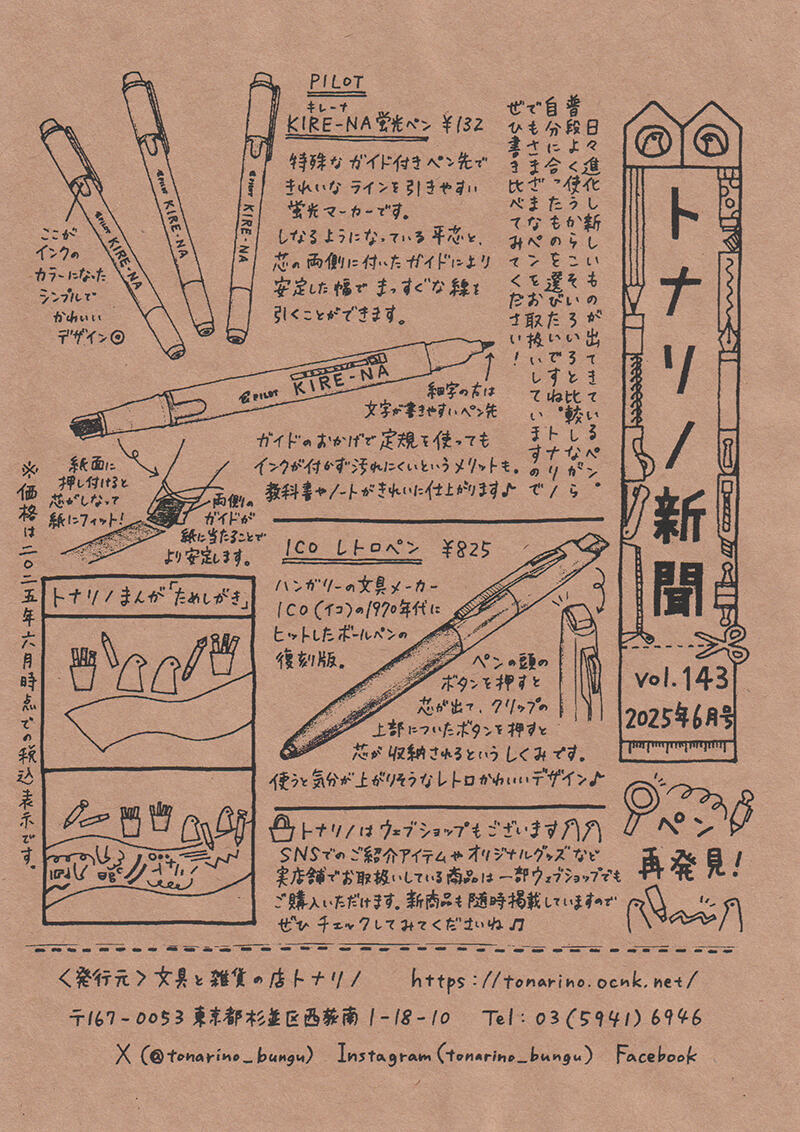 トナリノ新聞
vol.143
2025年6月号
ペン
再発見!
日々進化し新しいものが出てきているペン。
普段よく使うからこそいろいろと比較しながら
自分に合ったものを選びたいですね。トナリノ
でもさまざまなペンをお取扱いしていますので
ぜひ書き比べてみてください!
PILOT
キレーナ
KIRE-NA蛍光ペン ¥132
特殊なガイド付きペン先で
きれいなラインを引きやすい
蛍光マーカーです。
しなるようになっている平芯と、
芯の両側に付いたガイドにより
安定した幅でまっすぐな線を
引くことができます。
PILOT KIRE-NA
PILOT KIRE-NA
PILOT KIRE-NA
ここが
インクの
カラーになった
シンプルで
かわいい
デザイン◎
PILOT KIRE-NA
細字の方は
文字が書きやすいペン先
ガイドのおかげで定規を使っても
インクが付かず汚れにくいというメリットも。
教科書やノートがきれいに仕上がります♪
紙面に
押し付けると
芯がしなって
紙にフィット!
両側の
ガイドが
紙に当たることで
より安定します。
ICO レトロペン ¥825
ハンガリーの文具メーカー
ICO(イコ)の1970年代に
ヒットしたボールペンの
復刻版。
ペンの頭の
ボタンを押すと
芯が出て、クリップの
上部についたボタンを押すと
芯が収納されるというしくみです。
使うと気分が上がりそうなレトロかわいいデザイン♪
トナリノまんが「ためしがき」
トナリノ
※価格は二〇二五年六月時点での税込表示です。
トナリノはウェブショップもございます
SNSでのご紹介アイテムやオリジナルグッズなど
実店舗でお取扱いしている商品は一部ウェブショップでも
ご購入いただけます。新商品も随時掲載していますので
ぜひチェックしてみてくださいね♫
〈発行元〉文具と雑貨の店トナリノ https://tonarino.ocnk.net/
〒167-0053 東京都杉並区西荻南1-18-10 Tel:03(5941)6946
X(@tonarino_bungu) Instagram(tonarino_bungu) Facebook